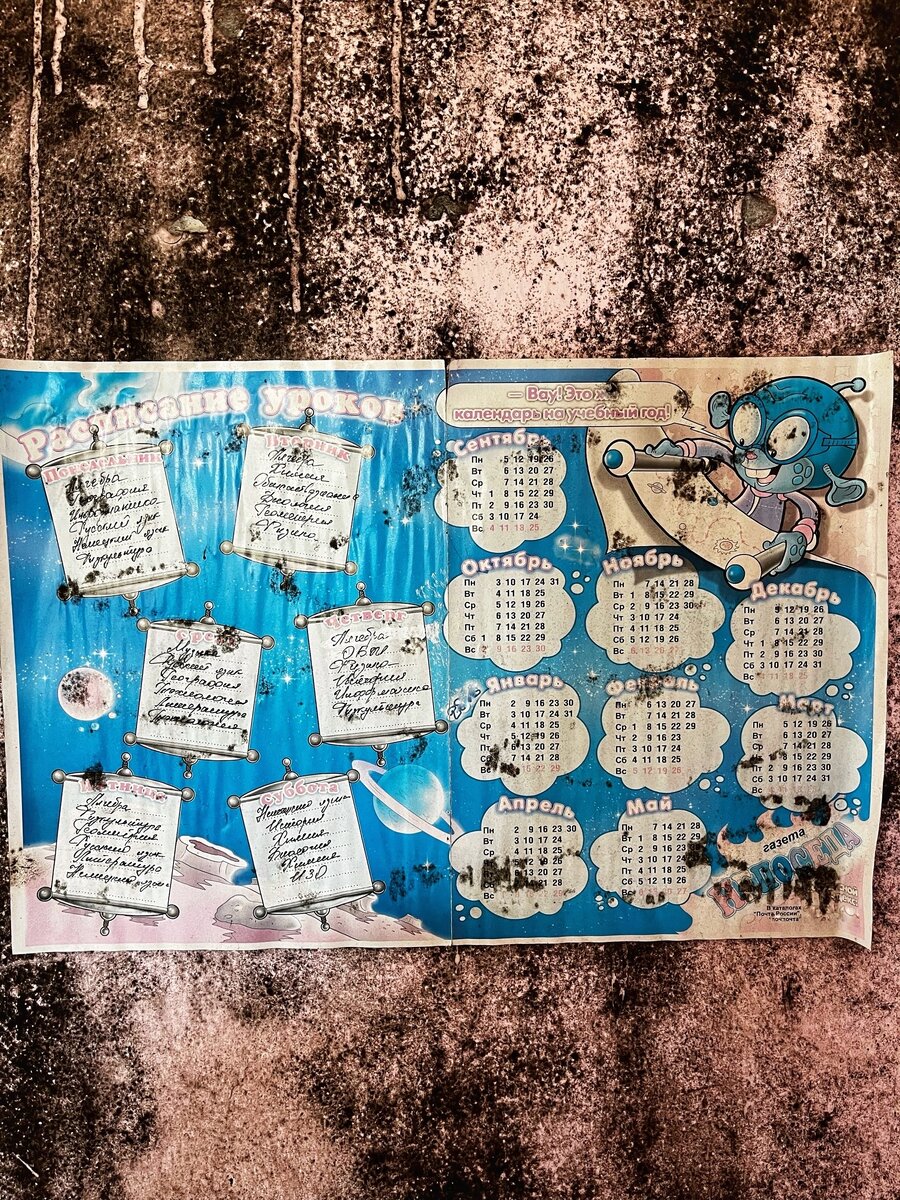 Расписание уроков
Понедельник
Алгебра
География
Информатика
Русский язык
Немецкий язык
Физкультура
Вторник
Алгебра
Химия
Обществознание
Биология
Геометрия
Физика
Среда
Музыка
язык
География
Технология
Литература
Технология
Четверг
Алгебра
ОБЖ
Физика
История
Информатика
Физкультура
Пятница
Алгебра
Физкультура
Геометрия
Русский язык
Литература
Суббота
язык
История
Химия
Биология
ИЗО
— Вау! Это ж
календарь на учебный год!
Сентябрь
Пн 5 12 19 26
Вт 6 13 20 27
Ср 7 14 21 28
Чт 1 8 15 22 29
Пт 2 9 16 23 30
Сб 3 10 17 24
Вс 4 11 18 25
Октябрь
Пн 3 10 17 24 31
Вт 4 11 18 25
Ср 5 12 19 26
Чт 6 13 20 27
Пт 7 14 21 28
Сб 1 8 15 22 29
Вс 2 9 16 23 30
Ноябрь
Пн 7 14 21 28
Вт 1 8 15 22 29
Ср 2 9 16 23 30
Чт 3 10 17 24
Пт 4 11 18 25
Сб 5 12 19 26
Вс 6 13 20 27
Декабрь
Пн 5 12 19 26
Вт 6 13 20 27
Ср 7 14 21 28
Чт 1 8 15 22 29
Пт 2 9 16 23 30
Сб 3 10 17 24 31
Вс 4 11 18 25
Январь
Пн 2 9 16 23 30
Вт 3 10 17 24 31
Ср 4 11 18 25
Чт 5 12 19 26
Пт 6 13 20 27
Сб 7 14 21 28
Вс 15 22 29
Февраль
Пн 6 13 20 27
Вт 7 14 21 28
Ср 1 8 15 22 29
Чт 2 9 16 23
Пт 3 10 17 24
Сб 4 11 18 25
Вс 5 12 19 26
Март
Пн 5 12 19 26
Вт 6 13 20 27
Ср 7 14 21 28
Чт 1 8 15 22 29
Пт 2 9 16 23 30
Сб 3 10 17 24 31
Вс
Апрель
Пн 2 9 16 23 30
Вт 3 10 17 24
Ср 4 11 18 25
Чт 12 19 26
Пт 13 20 27
Сб 21 28
Вс
Май
Пн 7 14 21 28
Вт 1 8 15 22 29
Ср 2 9 16 23 30
Чт 3 10 17 24 31
Пт 4 11 18 25
Сб 5 12 19 26
Вс 6 13 20 27
газета
НЕПОСЕДА
В каталогах
"Почта России",